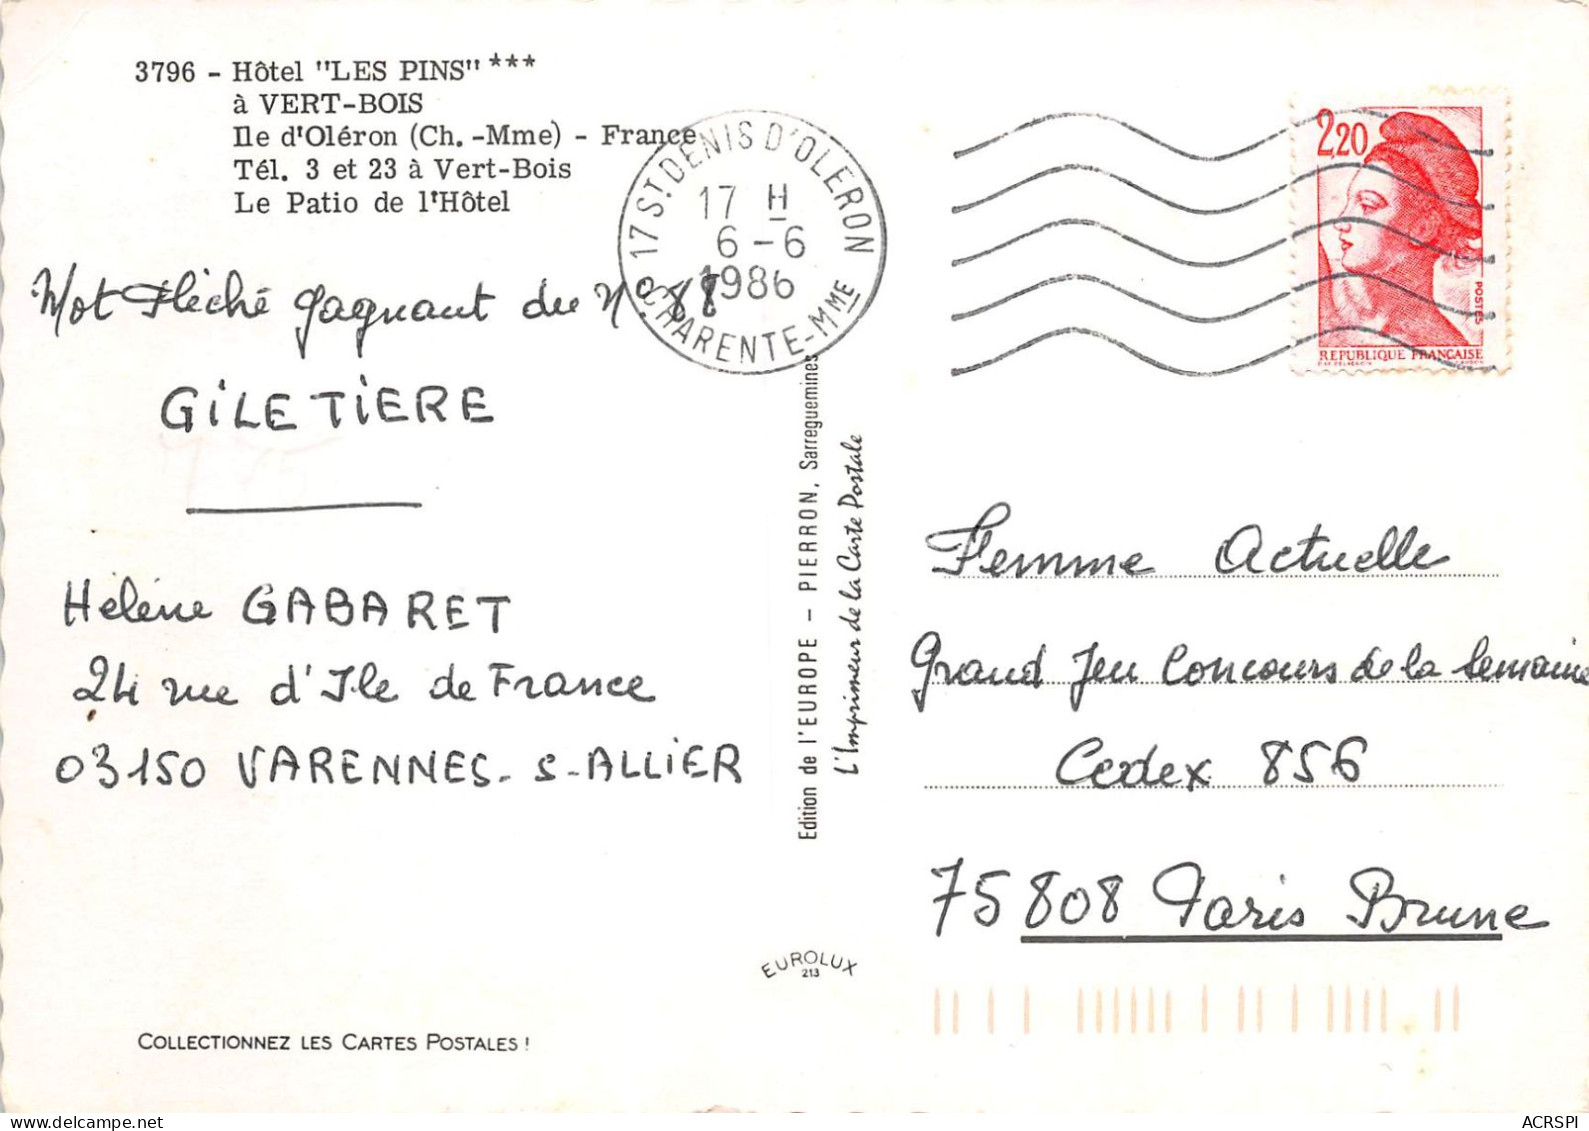 3796 - Hôtel "LES PINS" ***
à VERT-BOIS
Ile d'Oléron (Ch. -Mme) - France
Tél. 3 et 23 à Vert-Bois
Le Patio de l'Hôtel
17 ST DENIS D'OLERON
17 H
6 - 6
1986
CHARENTE-MME
2,20
POSTES
REPUBLIQUE FRANÇAISE
Mot Fléché gagnant du N° 88
GILETIERE
Hélène GABARET
24 rue d'Ile de France
03150 VARENNES-S-ALLIER
Edition de l'EUROPE - PIERRON, Sarreguemines
L'Imprimeur de la Carte Postale
Femme Actuelle
Grand Jeu Concours de la Semaine
Cedex 856
75808 Paris Brune
EUROLUX
213
COLLECTIONNEZ LES CARTES POSTALES !
ACRSPI